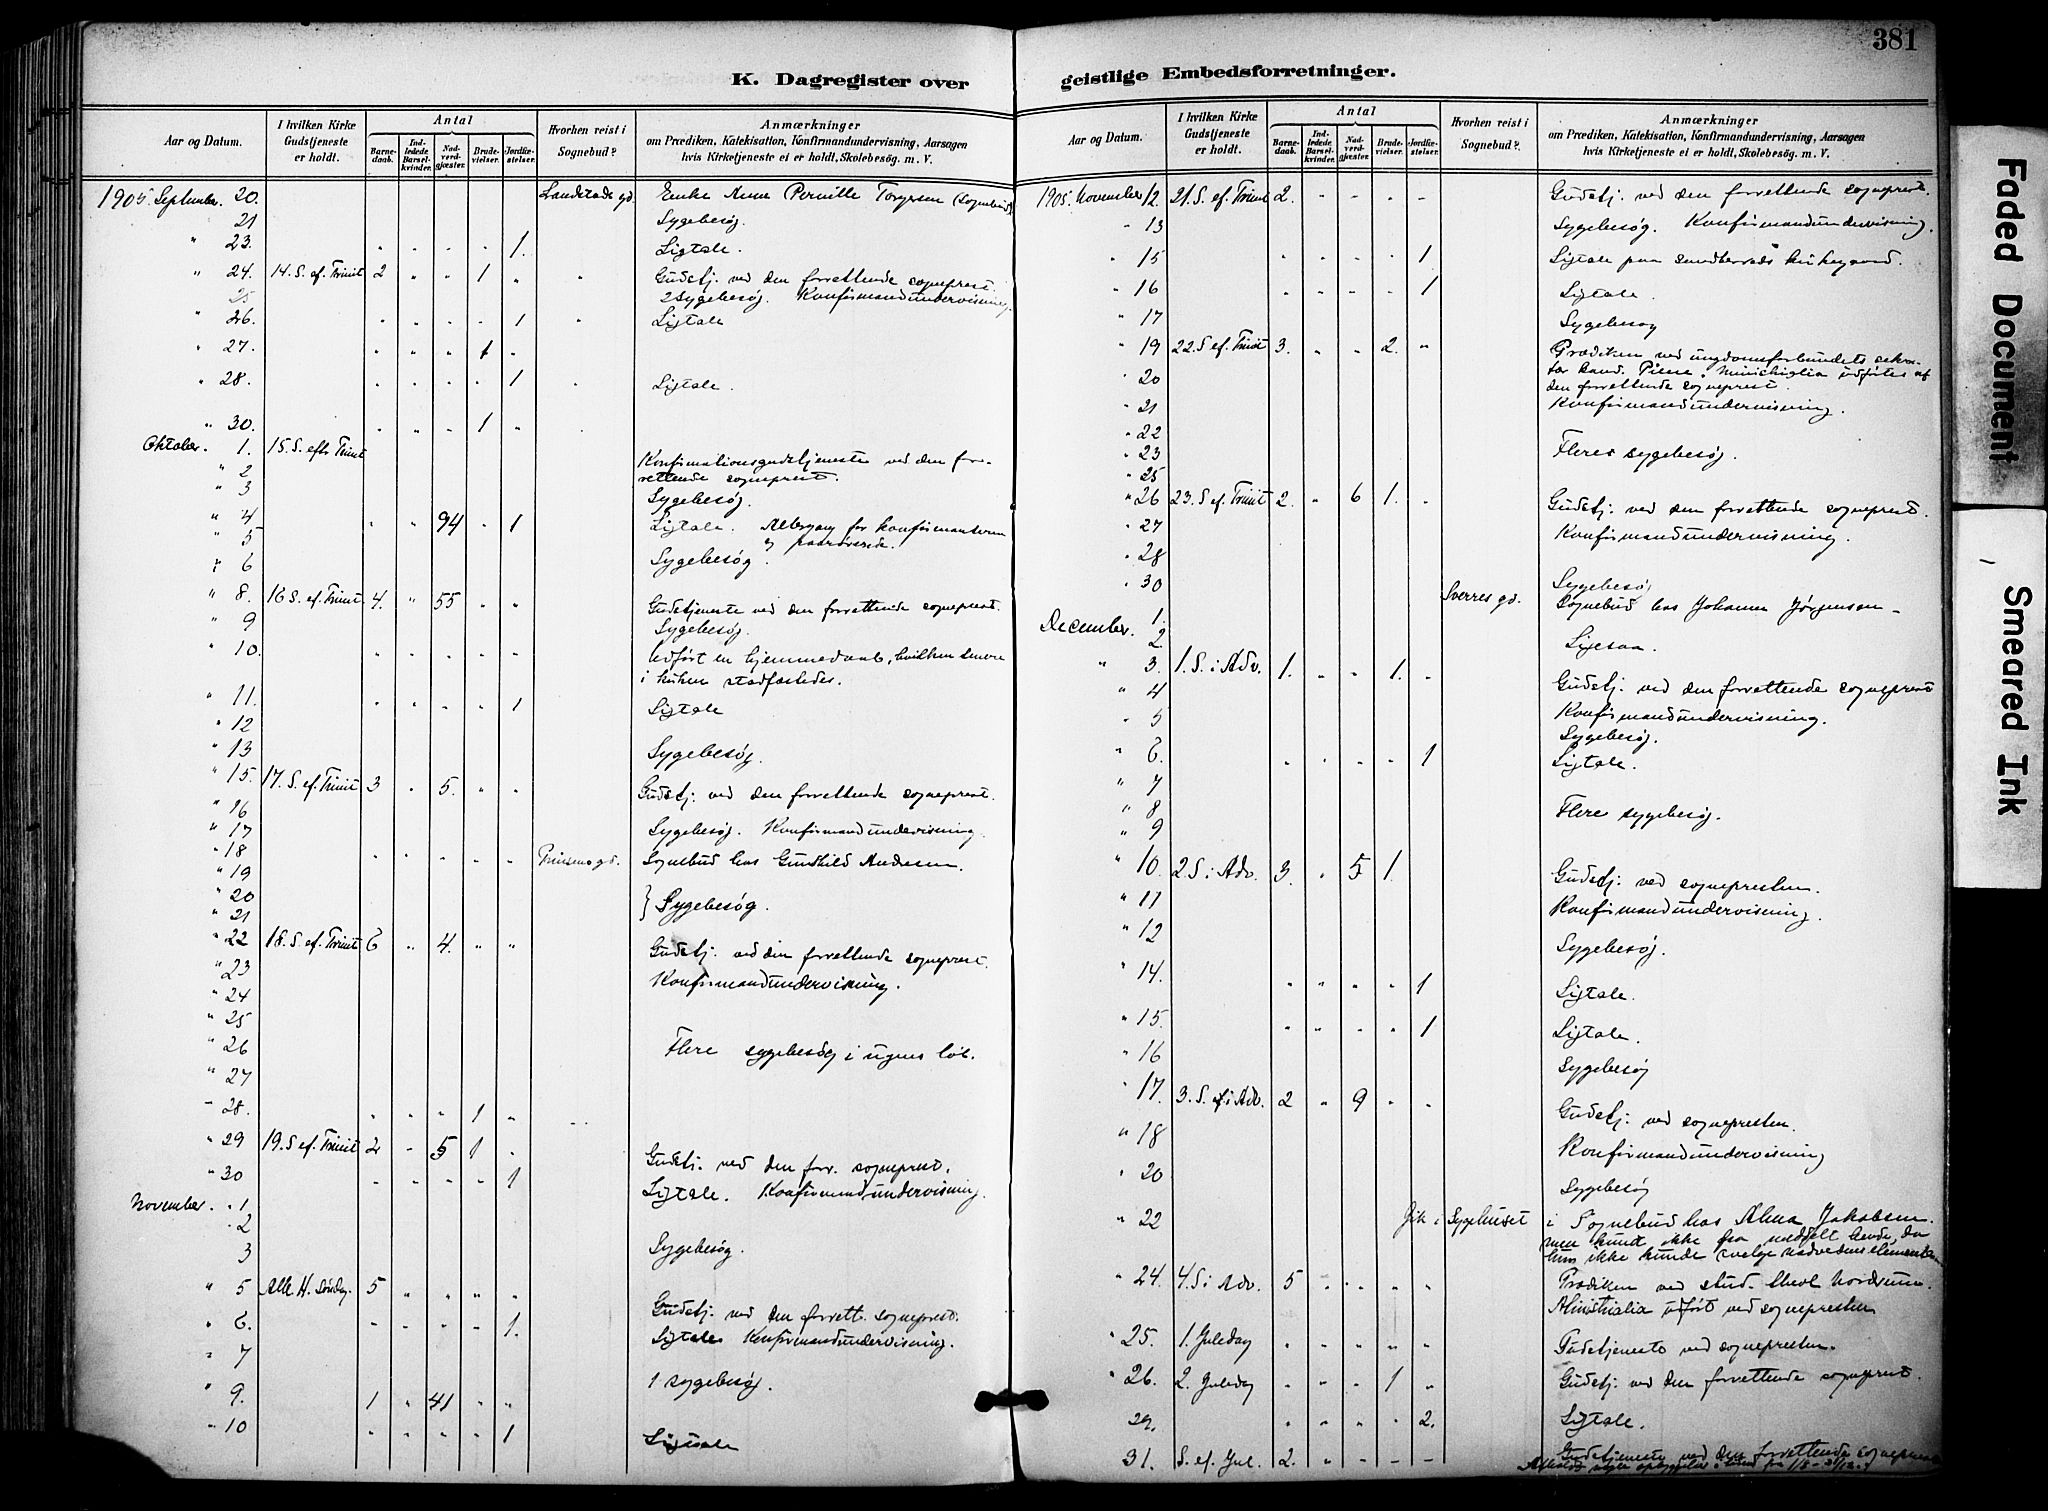 381
K. Dagregister over
Aar og Datum.
I hvilken Kirke Gudstjeneste er holdt.
Antal
Barnedaab.
Indledede Barselkvinder.
Nadverdgjester.
Brudevielser.
Jordfæstelser.
Hvorhen reist i Sognebud?
Anmærkninger
om Prædiken, Katekisation, Konfirmandundervisning, Aarsagen
hvis Kirketjeneste ei er holdt, Skolebesøg. m. V.
1905 September 20. Landstads gd. Enke Anne Pernille Torgersen (Sognebud)
21 Sygebesøg.
" 23. " " " " 1. Ligtale.
" 24. 14. S. ef. Trinit 2 " " 1 " " Gudstj. ved den forrettende sogneprest.
25 2 Sygebesøg. Konfirmandundervisning
" 26. " " " " 1 " Ligtale
" 27. " " " 1 "
" 28. " " " " 1 " Ligtale.
" 30. " " " 1 " "
Oktober. 1. 15. S. eftr Trinit
" 2 Konfirmationsgudstjeneste ved den for-
rettende sogneprest.
" 3 Sygebesøg.
" 4 " " 94 " 1 Ligtale. Altergang for konfirmanterne
" 5 & paarørende.
" 6 Sygebesøg.
" 8. 16 S. ef. Trinit 4. " 55 " " Gudstjeneste ved den forrettende sogneprest.
" 9 Sygebesøg.
" 10. " " " " " Udført en hjemmedaab, hvilken senere
i kirken stadfæstedes.
" 11. " " " " 1 Ligtale
" 12
" 13 Sygebesøg.
" 15. 17. S. ef. Trinit 3 " 5. " " Gudstj. ved den forrettende sogneprest.
" 16
" 17 Sygebesøg. Konfirmandundervisning.
" 18 " " " " " Prinsens gd. Sognebud hos Gunhild Andersen.
" 19
" 20 } Sygebesøg.
" 21
" 22 18. S. ef. Trinit 6 " 4. " " Gudstj. ved den forrettende sogneprest.
" 23 Konfirmandundervisning.
" 24
" 25
" 26 Flere sygebesøg i ugens løb.
" 27
" 28. " " " 1 "
" 29 19. S ef. Trinit 2 " 5 1 " Gudstj. ved den forr. sogneprest.
" 30 " " " " 1 Ligtale. Konfirmandundervisning.
November. " 1
" 2
3 Sygebesøg.
" 5 Alle H. Søndag. 5 " " " " Gudstj. ved den forrett. sogneprest.
" 6. " " " " 1. Ligtale Konfirmandundervisning.
" 7
" 9. 1 " 41 " " 1 sygebesøg.
" 10 " " " " 1 Ligtale
geistlige Embedsforretninger.
Aar og Datum.
I hvilken Kirke Gudstjeneste er holdt.
Antal
Barnedaab.
Indledede Barselkvinder.
Nadverdgjester.
Brudevielser.
Jordfæstelser.
Hvorhen reist i Sognebud?
Anmærkninger
om Prædiken, Katekisation, Konfirmandundervisning, Aarsagen
hvis Kirketjeneste ei er holdt, Skolebesøg. m. V.
1905. November 12. 21. S. ef. Trinit 2. " " " " Gudstj. ved den forrettende sogneprest.
" 13 Sygebesøg. Konfirmandundervisning.
" 15 " " " " 1 Ligtale paa kirkegaard.
" 16 " " " " 1 Ligtale.
" 17 Sygebesøg
" 19 22. S ef. Trinit 3. " " 2. " Prædiken ved ungdomsforbundets sekre-
" 20 tær kand. Ministerialia udførtes af
den forrettende sogneprest.
" 21 Konfirmandundervisning.
" 22
" 23 Flere sygebesøg.
" 25
" 26 23. S ef. Trinit 2. " 6 1. " Gudstj. ved den forrettende sogneprest.
" 27 Konfirmandundervisning.
" 28
" 30 Sygebesøg
Sverres gd. Sognebud hos Johanne Jørgensen
December. 1.
2 Ligesaa.
" 3. 1. S. i Adv. 1. " " 1. " Gudstj. ved den forrettende sogneprest
" 4 Konfirmandundervisning.
" 5 Sygebesøg.
" 6. " " " " 1 Ligtale.
" 7
" 8 Flere sygebesøg.
" 9
" 10. 2 S. i Adv. 3. " 5 1. Gudstj. ved sognepresten.
" 11 Konfirmandundervisning.
" 12 Sygebesøg.
" 14. " " " " 1 Ligtale.
" 15. " " " " 1 Ligtale.
" 16 Sygebesøg
" 17. 3. S. i Adv. 2 " 9 " " Gudstj. ved sognepresten.
" 18 Konfirmandundervisning
" 20 Sygebesøg
" 22 Gik i Sygehuset i Sognebud hos Alma Jakobsen.
men kunde ikke faa meddelt hende, da
hun ikke kunde svelge nadverdens elementer
" 24. 4. S i Adv. 5 " " " " Prædiken ved stud. theol. Nordrum.
Ministerialia udført ved sognepresten
" 25. 1. Juledag " " " " " Gudstjeneste ved sognepresten.
" 26. 2. Juledag " " " 1 " Gudstj. ved den forrettende sogneprest.
29. " " " " 2. Ligtale.
31. S. ef. Jul. 2. " " " " Gudstjeneste ved den forrettende sogneprest
Faded Document
Smeared Ink